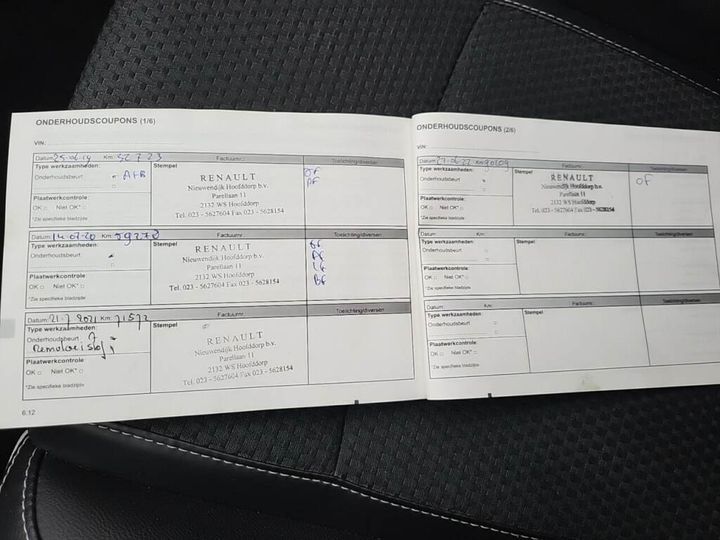 ONDERHOUDSCOUPONS (1/6)
VIN:
Datum: 25-06-19 Km: 52723 Factuurnr.: Toelichting/diversen
Type werkzaamheden: Stempel
Onderhoudsbeurt A+B
RENAULT
Nieuwendijk Hoofddorp b.v.
Parellaan 11
2132 WS Hoofddorp
Tel. 023 - 5627604 Fax 023 - 5628154
OF
PF
Plaatwerkcontrole:
OK Niet OK*
*Zie specifieke bladzijde
Datum: 14-07-20 Km: 59278 Factuurnr.: Toelichting/diversen
Type werkzaamheden: Stempel
Onderhoudsbeurt
RENAULT
Nieuwendijk Hoofddorp b.v.
Parellaan 11
2132 WS Hoofddorp
Tel. 023 - 5627604 Fax 023 - 5628154
Plaatwerkcontrole:
OK Niet OK*
*Zie specifieke bladzijde
Datum: 21-7-2021 Km: 71572 Factuurnr.: Toelichting/diversen
Type werkzaamheden: Stempel
Onderhoudsbeurt A
Remvloeistof
RENAULT
Nieuwendijk Hoofddorp b.v.
Parellaan 11
2132 WS Hoofddorp
Tel. 023 - 5627604 Fax 023 - 5628154
Plaatwerkcontrole:
OK Niet OK*
*Zie specifieke bladzijde
6.12
ONDERHOUDSCOUPONS (2/6)
VIN:
Datum: Km: 90209 Factuurnr.: Toelichting/diversen
Type werkzaamheden: Stempel
Onderhoudsbeurt
RENAULT
Nieuwendijk Hoofddorp b.v.
Parellaan 11
2132 WS Hoofddorp
Tel. 023 - 5627604 Fax 023 - 5628154
OF
Plaatwerkcontrole:
OK Niet OK*
*Zie specifieke bladzijde
Datum: Km: Factuurnr.: Toelichting/diversen
Type werkzaamheden: Stempel
Onderhoudsbeurt
Plaatwerkcontrole:
OK Niet OK*
*Zie specifieke bladzijde
Datum: Km: Factuurnr.: Toelichting/diversen
Type werkzaamheden: Stempel
Onderhoudsbeurt
Plaatwerkcontrole:
OK Niet OK*
*Zie specifieke bladzijde